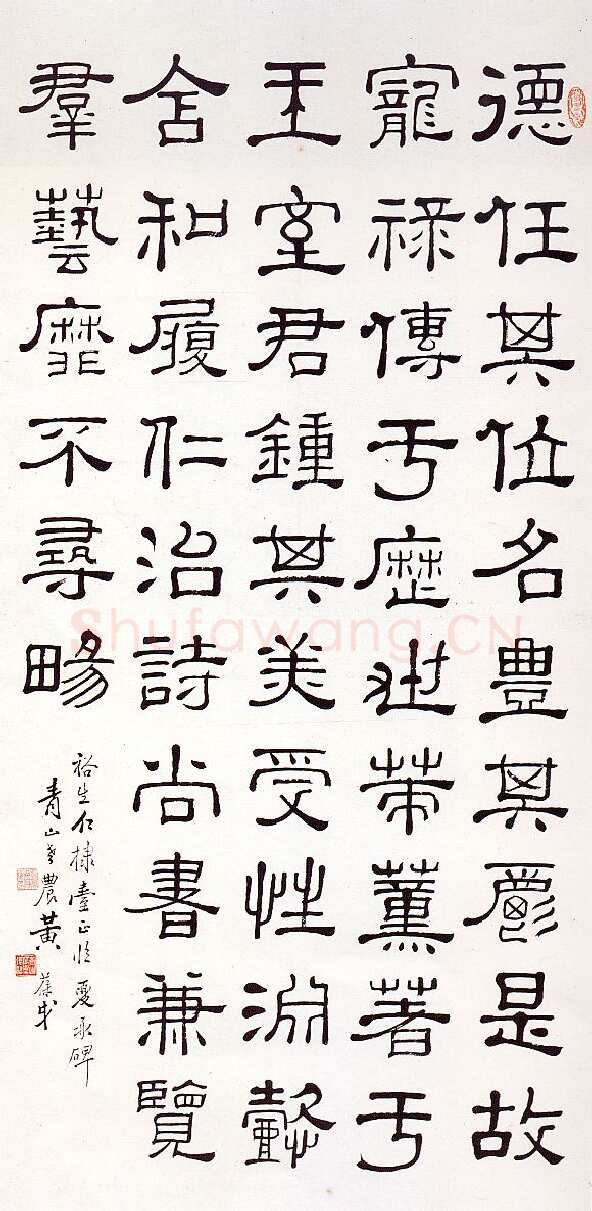 德任其位名豐其爵是故
寵祿傳于歷世荣薰著于
王室君鍾其美受性淵懿
含和履仁治詩尚書兼覽
羣藝靡不尋畅
裕生仁棣臺正臨夏承碑
青山老農黃葆戉
Shufawang.CN